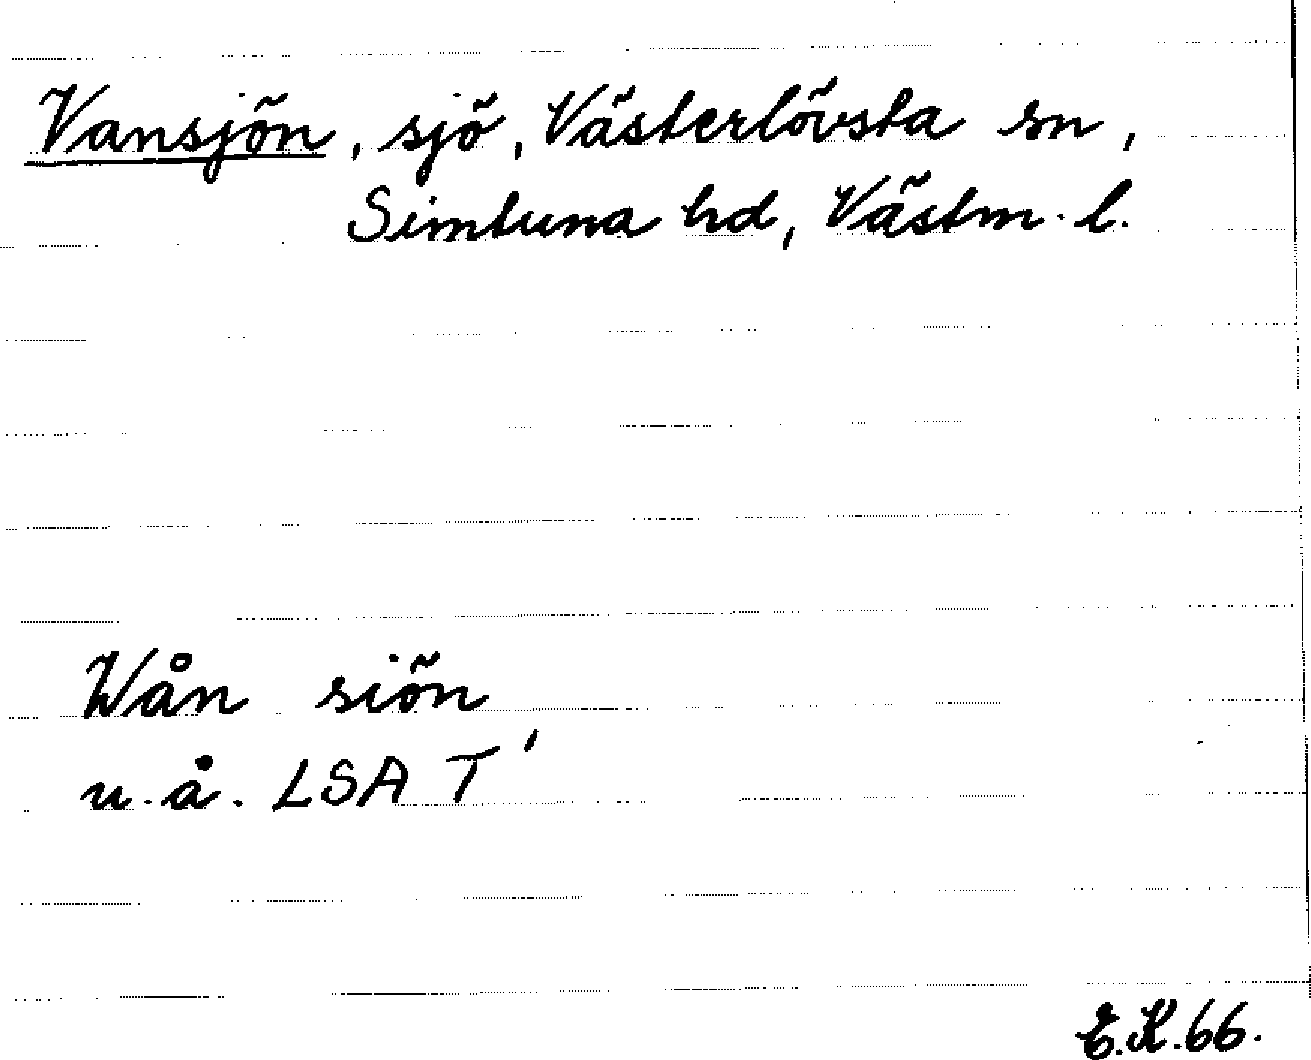 Vansjön, sjö, Västerlövsta sn,
Simtuna hd, Västm. l.
Wån siön
u.å. LSA T'
E.K.66.